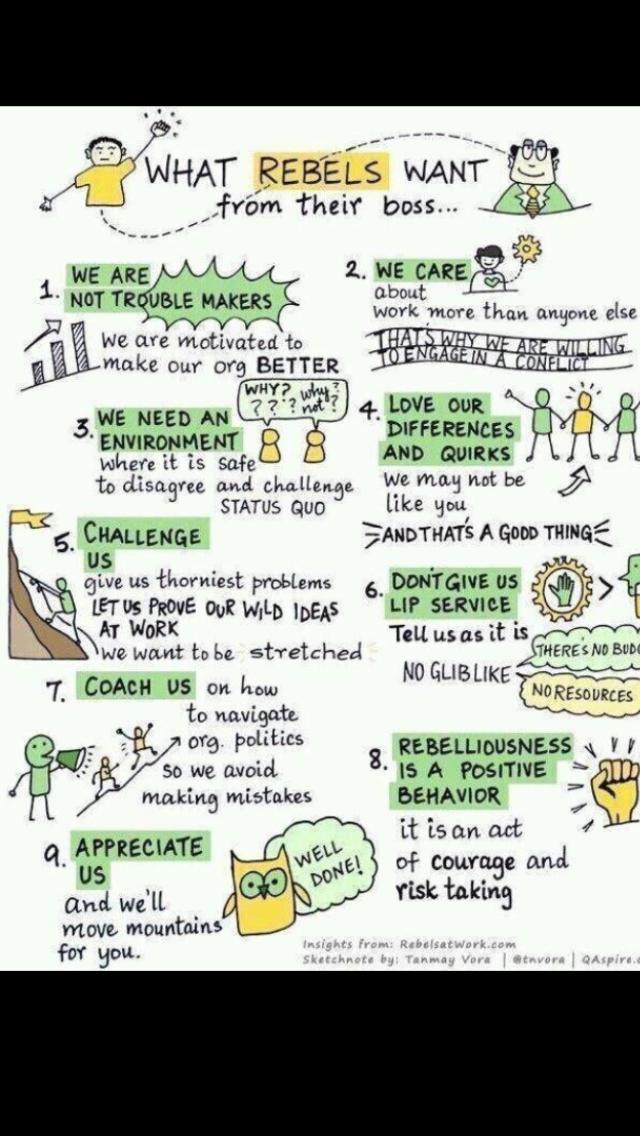 WHAT REBELS WANT
from their boss...
1. WE ARE
NOT TROUBLE MAKERS
We are motivated to
make our org BETTER
2. WE CARE
about
work more than anyone else
THAT'S WHY WE ARE WILLING
TO ENGAGE IN A CONFLICT
3. WE NEED AN
ENVIRONMENT
where it is safe
to disagree and challenge
STATUS QUO
WHY? why?
? ? ? not?
4. LOVE OUR
DIFFERENCES
AND QUIRKS
We may not be
like you
AND THAT'S A GOOD THING
5. CHALLENGE
US
give us thorniest problems
LET US PROVE OUR WILD IDEAS
AT WORK
we want to be stretched
6. DON'T GIVE US
LIP SERVICE
Tell us as it is
NO GLIB LIKE
THERE'S NO BUD
NO RESOURCES
7. COACH US on how
to navigate
org. politics
so we avoid
making mistakes
8. REBELLIOUSNESS
IS A POSITIVE
BEHAVIOR
it is an act
of courage and
risk taking
9. APPRECIATE
US
and we'll
move mountains
for you.
WELL
DONE!
Insights from: RebelsatWork.com
Sketchnote by: Tanmay Vora | @tnvora | QAspire.